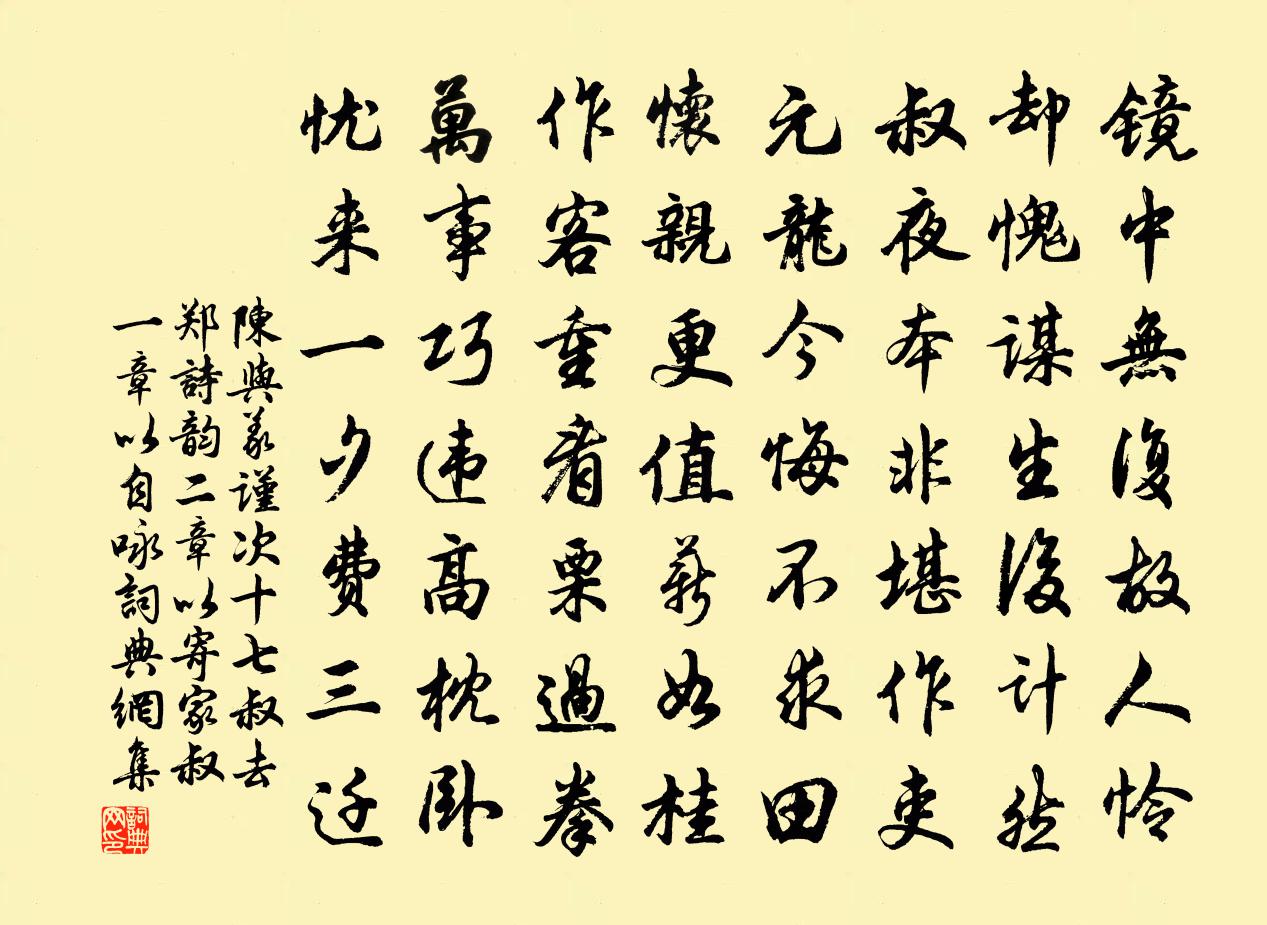 镜中無復故人怜
却愧谋生後计然
叔夜本非堪作吏
元龍今悔不求田
懷親更值薪如桂
作客重看栗過拳
萬事巧违高枕卧
忧来一夕費三迁
陳與義謹次十七叔去
郑詩韵二章以寄家叔
一章以自咏詞典網集
詞典网印